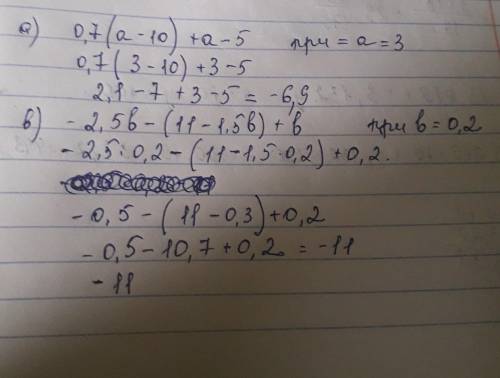 а) 0,7(а-10)+а-5 при = а = 3
0,7(3-10)+3-5
2,1-7+3-5=-6,9
в) -2,5в-(11-1,5в)+в при в=0,2
-2,5·0,2-(11-1,5·0,2)+0,2.
-0,5-(11-0,3)+0,2
-0,5-10,7+0,2=-11
-11